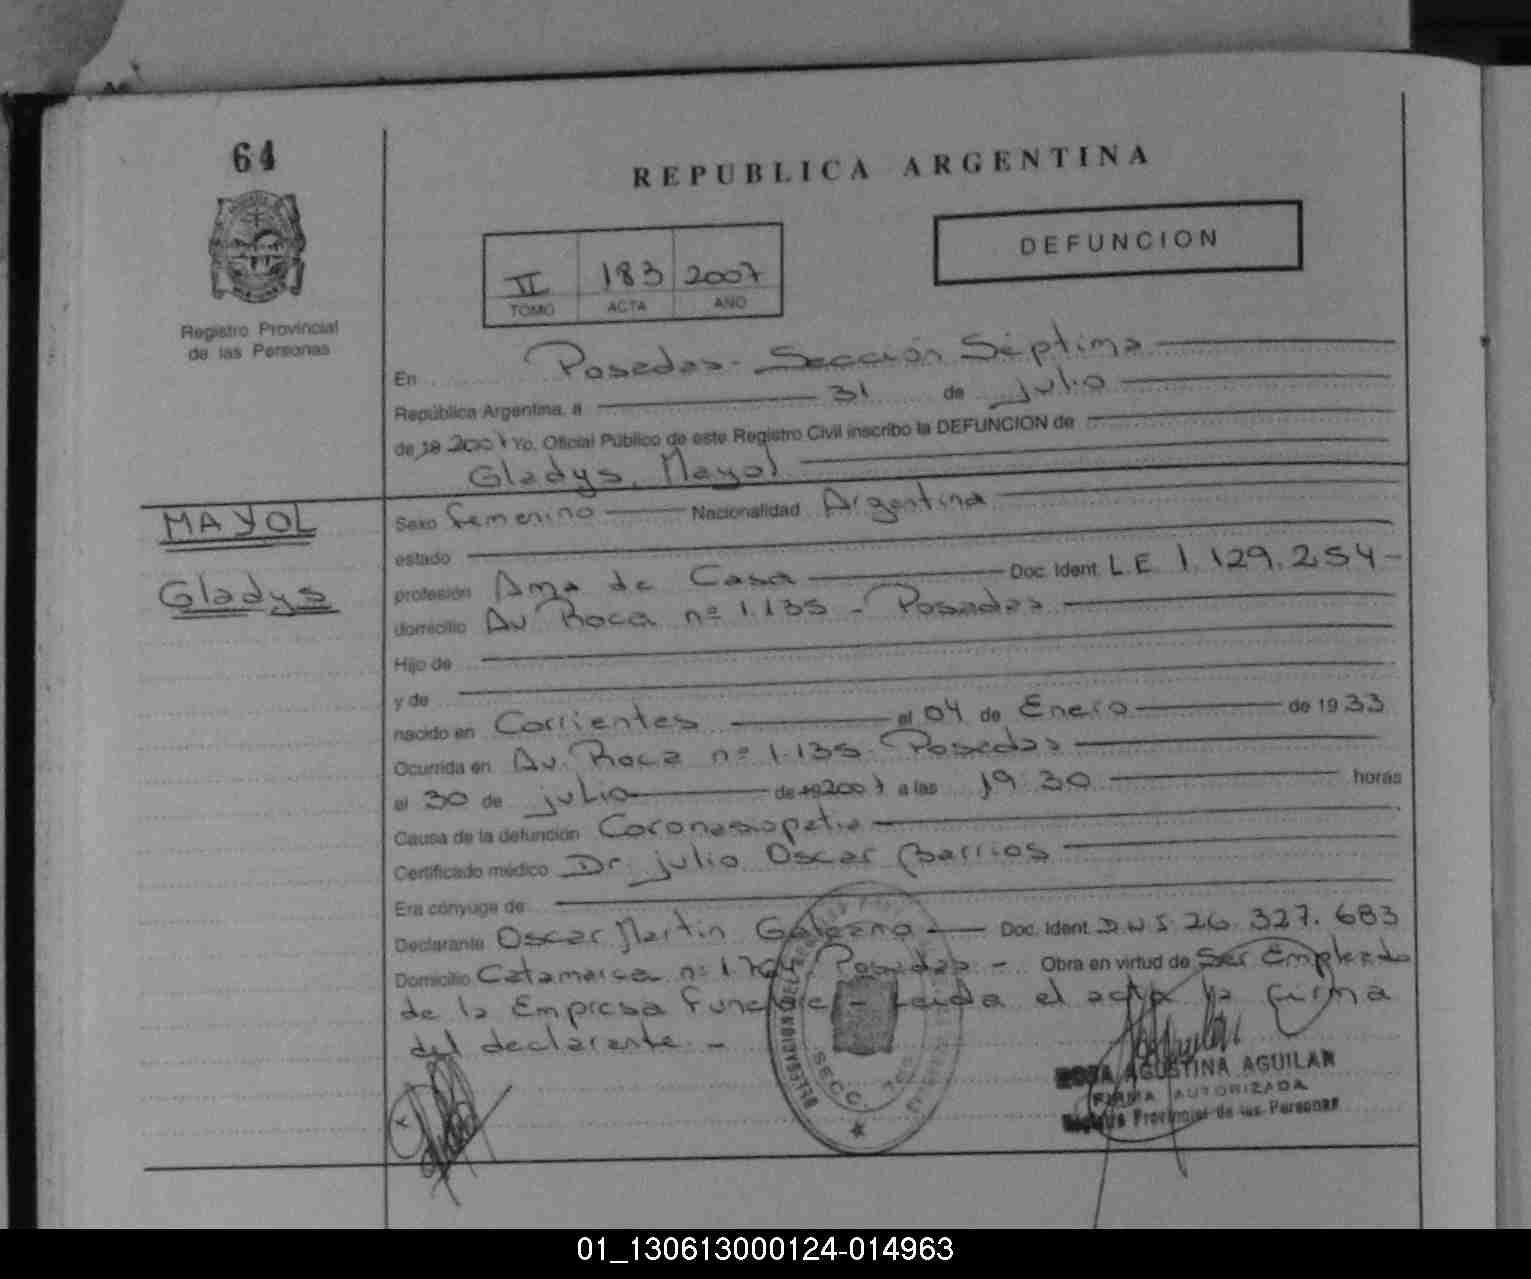 64
REPUBLICA ARGENTINA
DEFUNCION
II 183 2007
TOMO ACTA AÑO
Registro Provincial
de las Personas
En Posadas - Sección Séptima
República Argentina, a 31 de julio
de 19 2007 Yo, Oficial Público de este Registro Civil inscribo la DEFUNCION de
Gladys, Mayol
MAYOL
Gladys
Sexo femenino Nacionalidad Argentina
estado
profesión Ama de Casa Doc. Ident. L.E. 1.129.254-
domicilio Av Roca nº 1.135 - Posadas
Hijo de
y de
nacido en Corrientes el 04 de Enero de 1933
Ocurrida en Av. Roca nº 1.135 - Posadas
el 30 de julio de 19 2007 a las 19:30 horas
Causa de la defunción
Certificado médico Dr. julio Oscar Barrios
Era cónyuge de
Declarante Oscar Martin Galeano Doc. Ident. D.N.I. 26.327.683
Domicilio Catamarca nº Posadas - Obra en virtud de Ser Empleado
de la Empresa Leida el acta la firma
del declarante. -
DELEGACION DEL
SECC. 7ma
ROSA AGUSTINA AGUILAR
FIRMA AUTORIZADA
Registro Provincial de las Personas
01_130613000124-014963